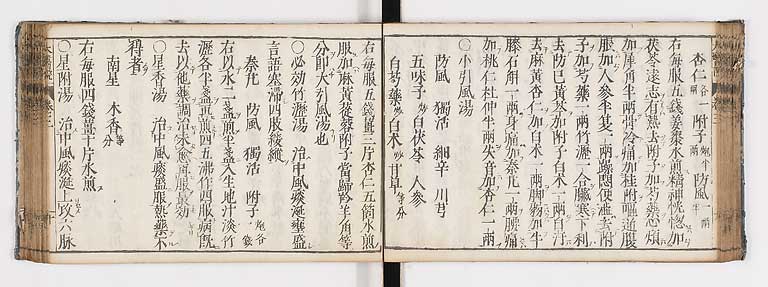 杏仁各一兩 附子炮半兩 防風一兩半
右每服五錢姜棗水煎精神恍惚加
茯苓遠志有熱去附子加芍藥心煩
加犀角半兩骨冷痛加桂附嘔逆腹
服加人參半夏一兩躁悶便澁去附
子加芍藥一兩竹瀝一合臓寒下利
去防已黃芩加附子白朮一兩自汗
去麻黃杏仁加白朮一兩脚弱加牛
膝石斛一兩身痛加秦艽一兩腰痛
加桃仁杜仲半兩失音加杏仁一兩
○小引風湯
防風 獨活 細辛 川芎
五味子 白茯苓 人參
白芍藥 白朮 甘草各等分
右每服五錢薑三片杏仁五箇水煎
服加麻黃蓯蓉附子當歸羚羊角等
分即大引風湯也
○必効竹瀝湯 治中風痰涎壅盛
言語蹇澁四服緩縱
秦艽 防風 獨活 附子炮各一錢
右以水二盞煎半盞入生地汁淡竹
瀝各半盞再煎四五沸作四服病旣
去以他藥調治未愈再服最効
○星香湯 治中風痰盛服熱藥不
得者
南星 木香等分
右每服四錢薑十片水煎
○星附湯 治中風痰涎上攻六脉